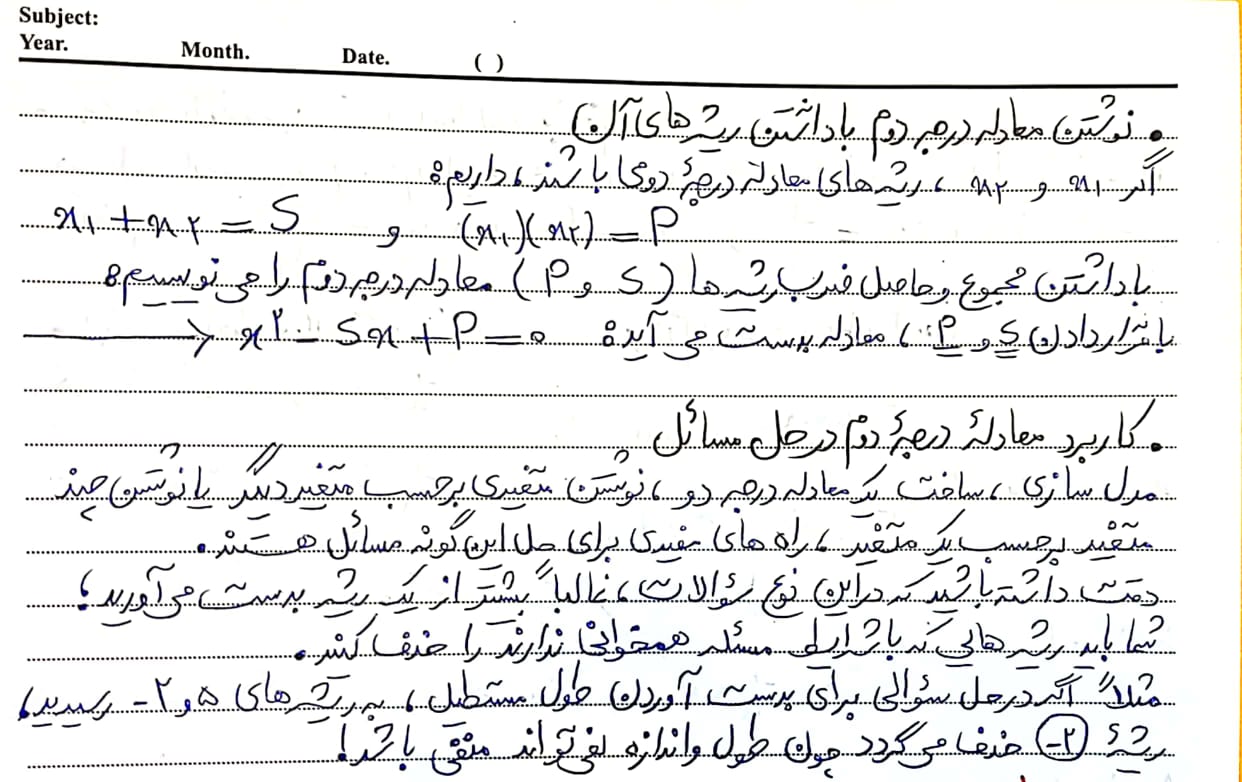 Subject:
Year. Month. Date. ( )
• نوشتن معادله درجه دوم با داشتن ریشه های آن
اگر x₁ و x₂ ، ریشه های معادلهٔ درجهٔ دومی باشند، داریم:
x₁ + x₂ = S و (x₁)(x₂) = P
با داشتن مجموع و حاصل ضرب ریشه ها (S و P) معادله درجه دوم را می نویسیم:
با قرار دادن S و P ، معادله بدست می آید: x² - Sx + P = 0 ⟶
• کاربرد معادلهٔ درجهٔ دوم در حل مسائل
مدل سازی ، ساخت یک معادله درجه دو ، نوشتن متغیری برحسب متغیر دیگر یا نوشتن چند
متغیر برحسب یک متغیر ، راه های مفیدی برای حل این گونه مسائل هستند.
دقت داشته باشید که در این نوع سؤالات ، غالباً بیشتر از یک ریشه بدست می آورید؛
شما باید ریشه هایی که با شرایط مسئله همخوانی ندارند را حذف کنید.
مثلاً اگر در حل سؤالی برای بدست آوردن طول مستطیل ، به ریشه های ۵ و ۲- رسیدید،
ریشهٔ (۲-) حذف می گردد چون طول و اندازه نمی تواند منفی باشد!